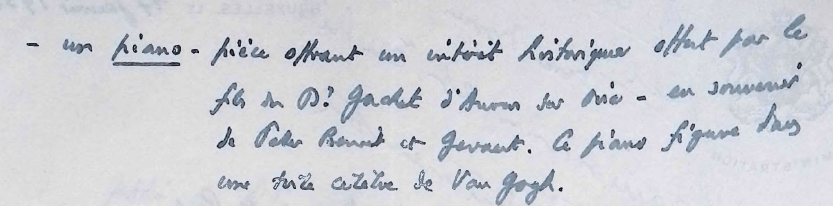 - un piano - pièce offrant un intérêt historique offert par le
fils du Dr Gachet d'Auvers sur Oise - en souvenir
de Peter Benoit et Gevaert. Ce piano figure dans
une toile célèbre de Van Gogh.